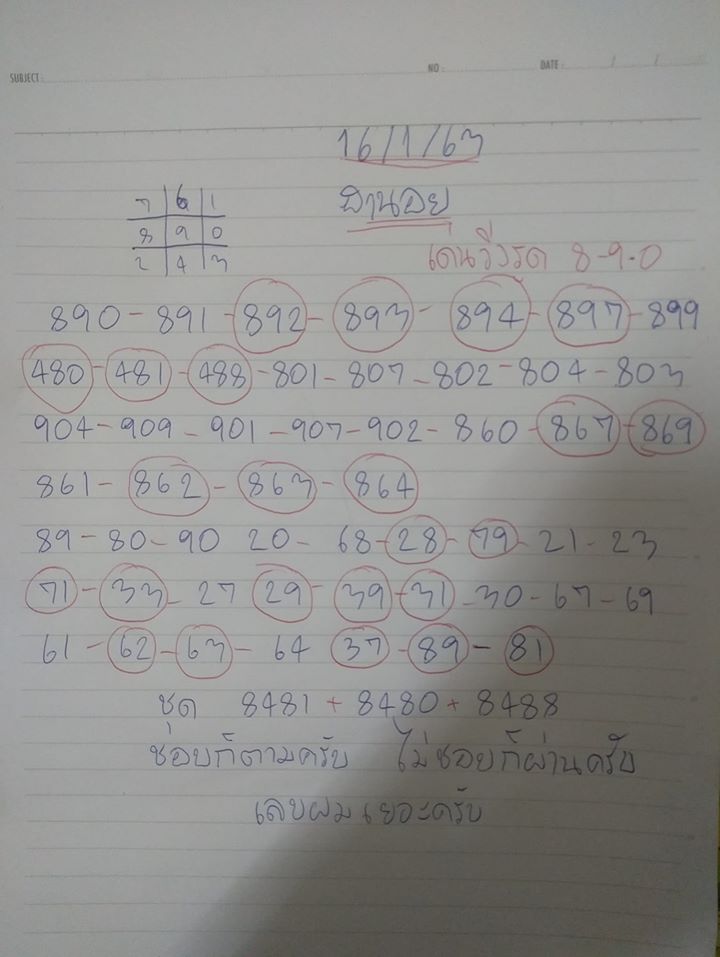 SUBJECT :
NO :
DATE : / /
16/1/63
ฮานอย
7 6 1
8 9 0
2 4 3
เด่นวิ่งรูด 8-9-0
890 - 891 - 892 - 893 - 894 - 897 - 899
480 - 481 - 488 - 801 - 807 - 802 - 804 - 803
904 - 909 - 901 - 907 - 902 - 860 - 867 - 869
861 - 862 - 863 - 864
89 - 80 - 90 20 - 68 - 28 - 79 - 21 - 23
71 - 33 - 27 29 - 39 - 31 - 30 - 67 - 69
61 - 62 - 63 - 64 37 - 89 - 81
ชุด 8481 + 8480 + 8488
ชอบก็ตามครับ ไม่ชอบก็ผ่านครับ
เลขผมเยอะครับ